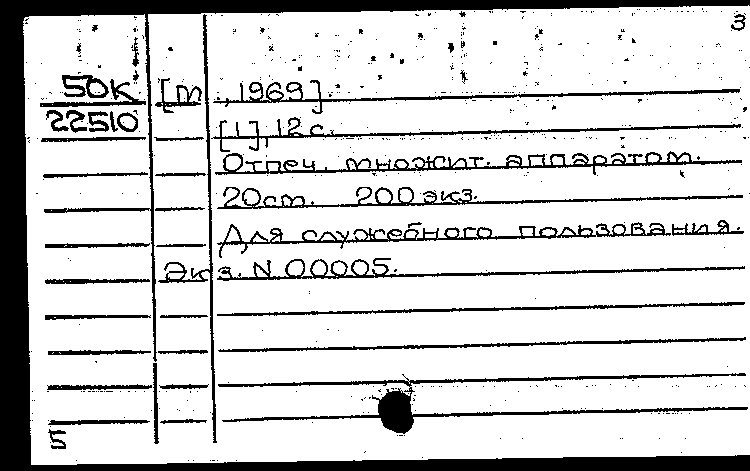 3
50К [М., 1969].
22510 [1], 12 с.
Отпеч. множит. аппаратом.
20 см. 200 экз.
Для служебного пользования.
Экз. N 00005.
Б